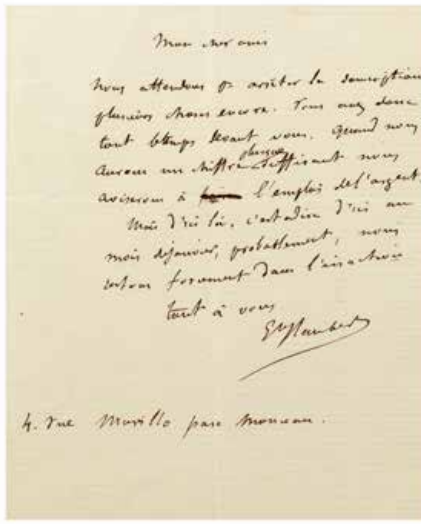 Mon cher ami
Nous attendons pr arrêter la souscription
plusieurs choses encore. Vous avez donc
tout le temps devant vous. Quand nous
aurons un chiffre presque suffisant nous
aviserons à l'emploi de l'argent.
Mais d'ici là, c'est à dire d'ici au
mois de janvier, probablement, nous
restons forcément dans l'inaction
tout à vous
Gve Flaubert
4. rue Murillo parc Monceau.